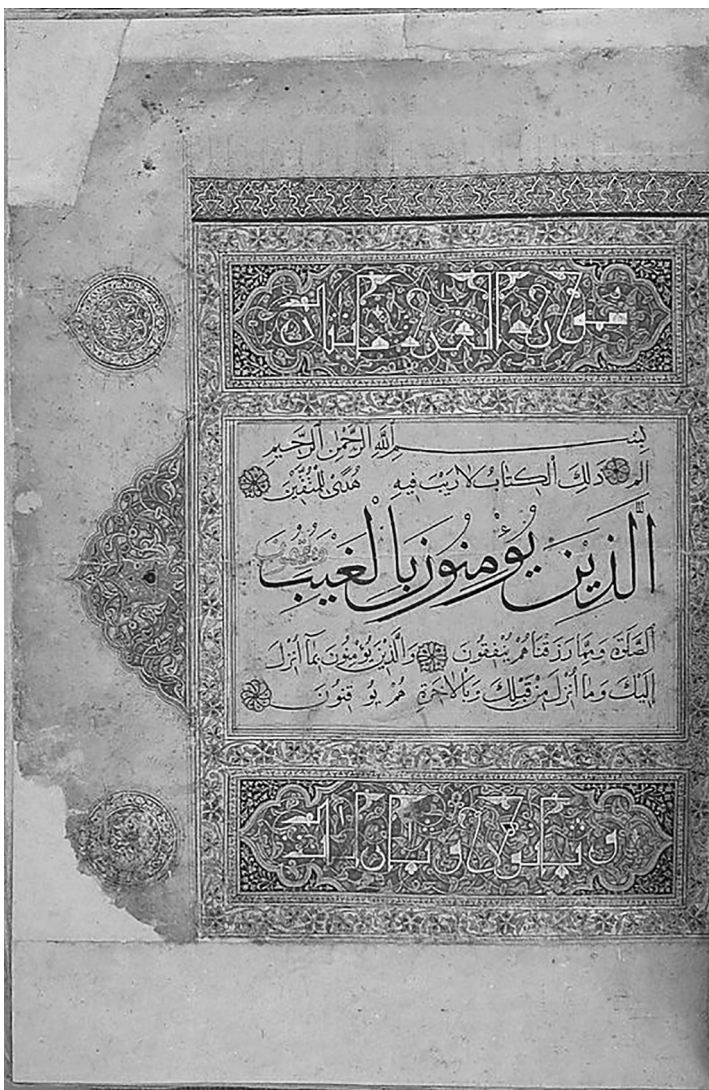 سورة البقرة
بِسْمِ اللَّهِ الرَّحْمَنِ الرَّحِيمِ
الم ذَلِكَ الْكِتَابُ لَا رَيْبَ فِيهِ هُدًى لِلْمُتَّقِينَ
الَّذِينَ يُؤْمِنُونَ بِالْغَيْبِ وَيُقِيمُونَ
الصَّلَوةَ وَمِمَّا رَزَقْنَاهُمْ يُنْفِقُونَ وَالَّذِينَ يُؤْمِنُونَ بِمَا أُنْزِلَ
إِلَيْكَ وَمَا أُنْزِلَ مِنْ قَبْلِكَ وَبِالْآخِرَةِ هُمْ يُوقِنُونَ